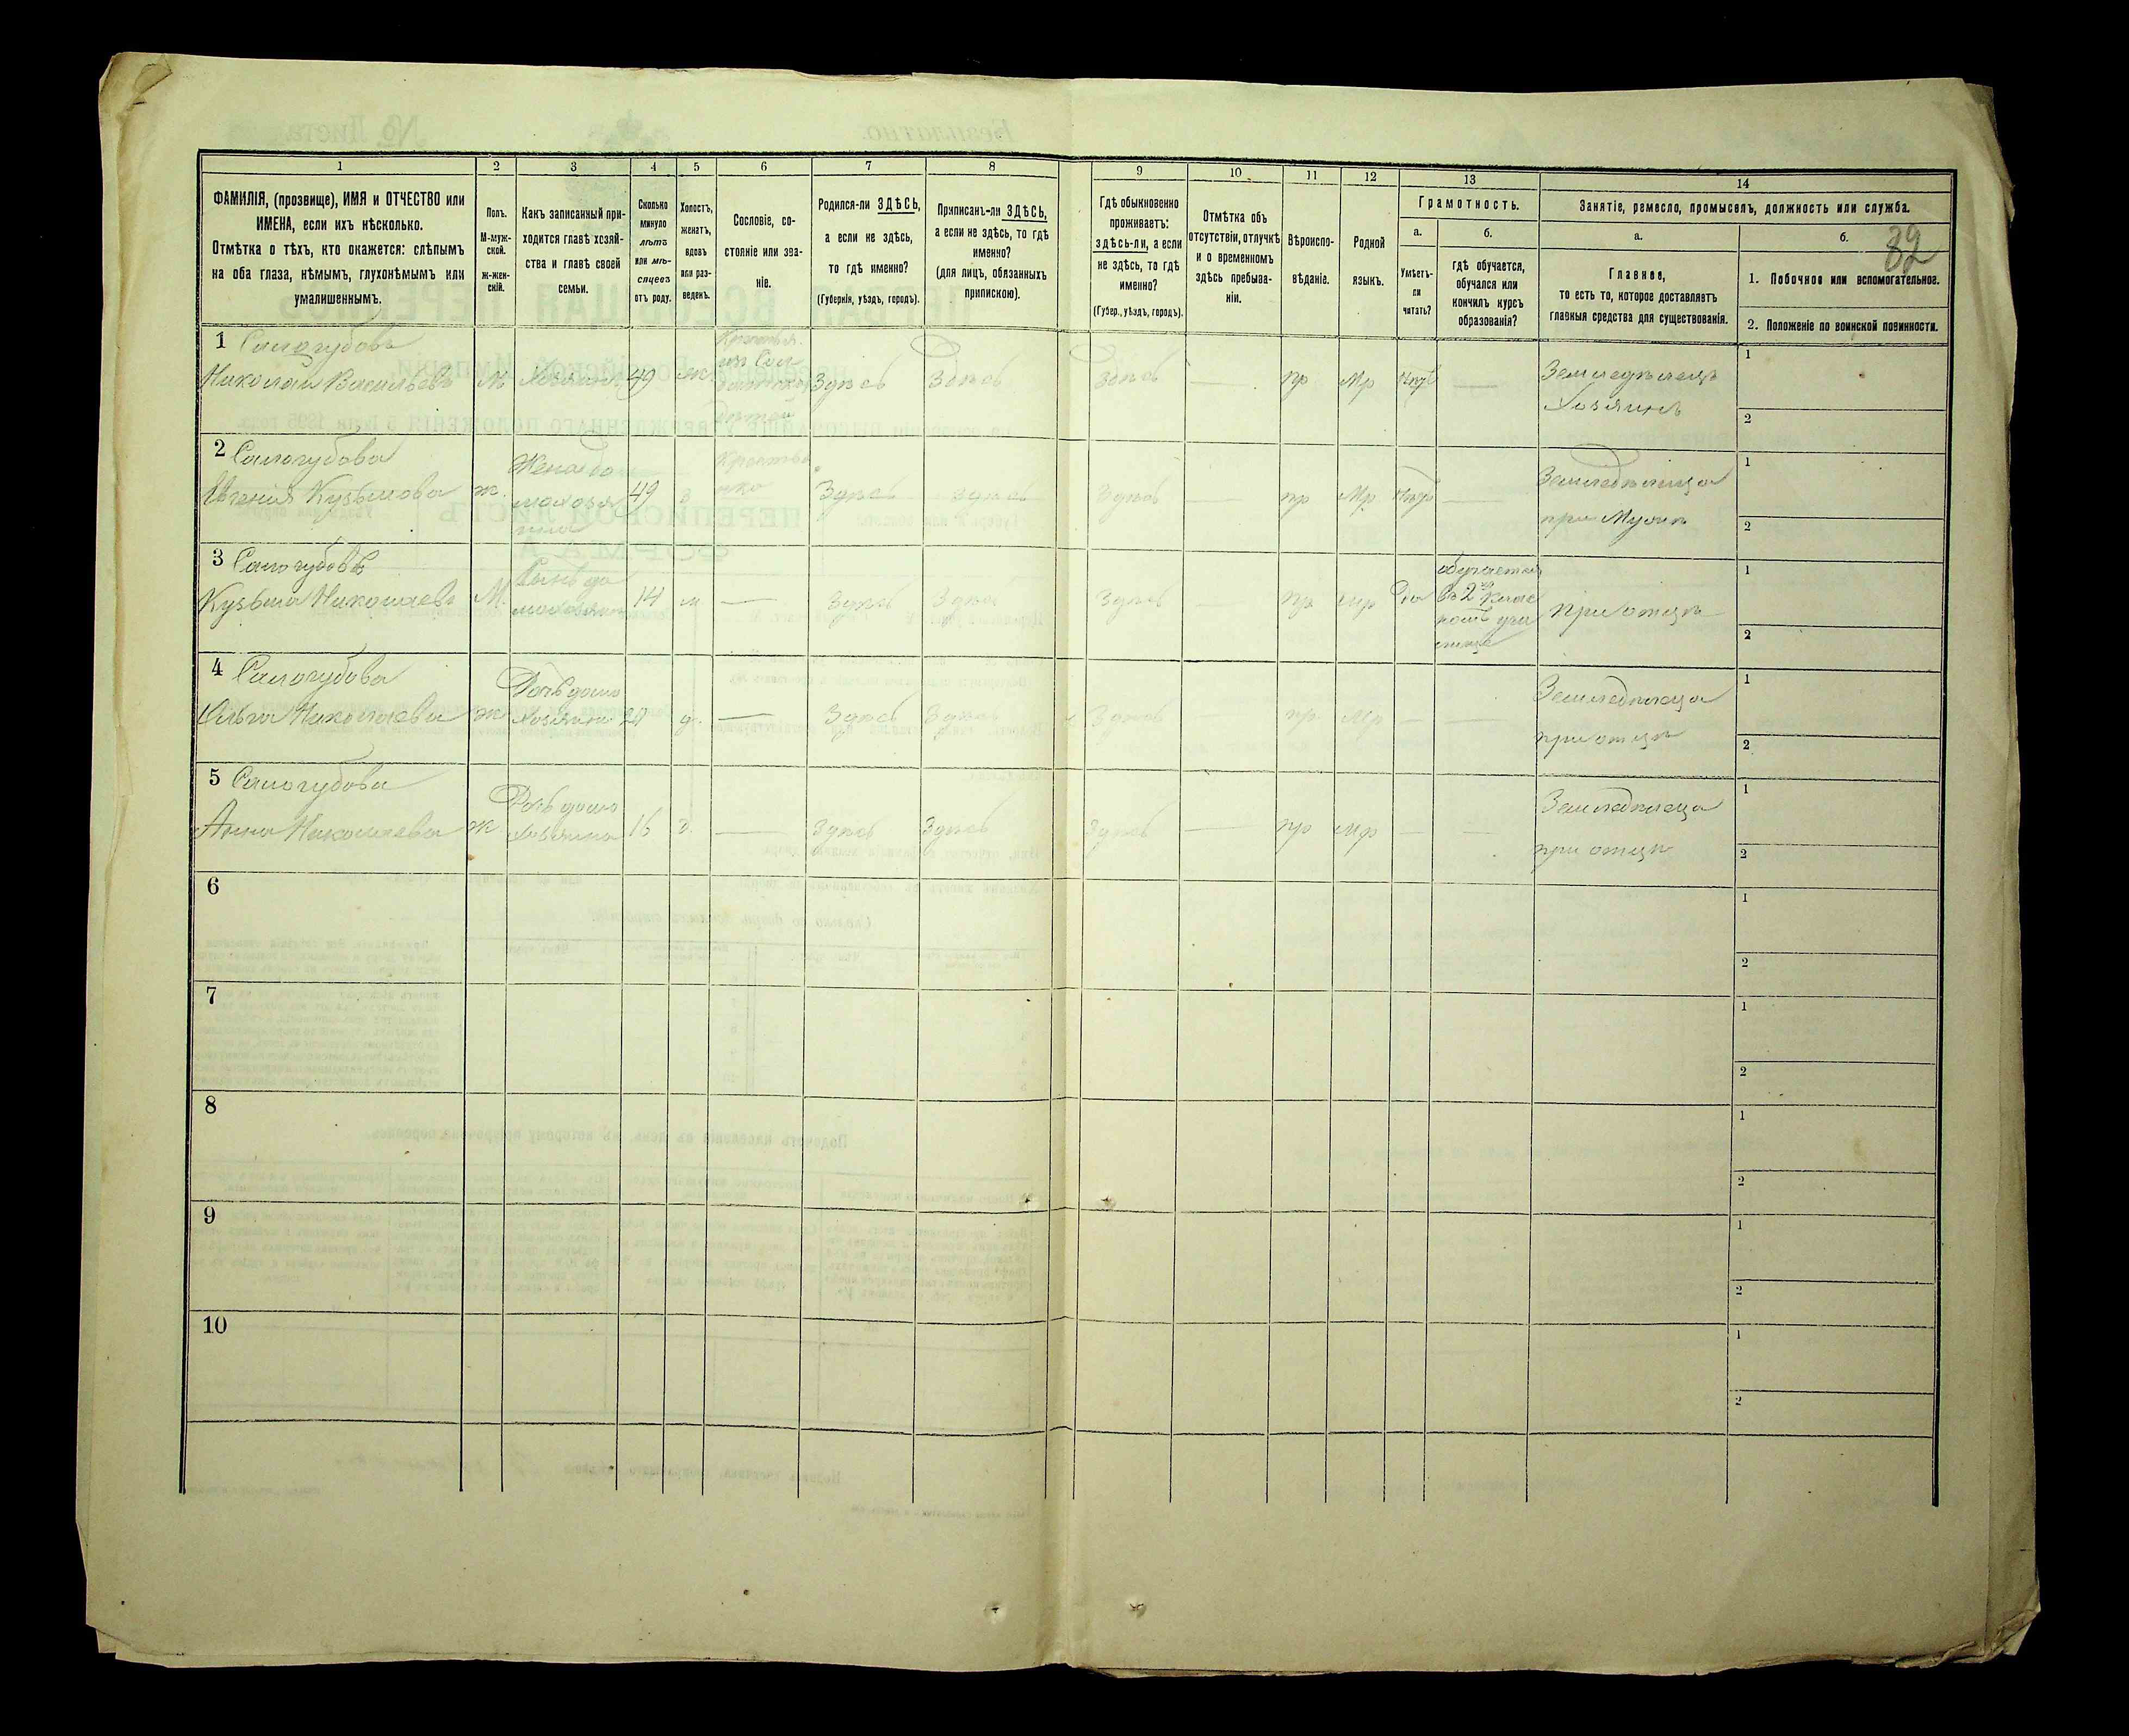 1
2
3
4
5
6
7
8
9
10
11
12
13
14
ФАМИЛІЯ, (прозвище), ИМЯ и ОТЧЕСТВО или
ИМЕНА, если ихъ нѣсколько.
Отмѣтка о тѣхъ, кто окажется: слѣпымъ
на оба глаза, нѣмымъ, глухонѣмымъ или
умалишеннымъ.
Полъ.
М-муж-
ской.
Ж-жен-
скій.
Какъ записанный при-
ходится главѣ хозяй-
ства и главѣ своей
семьи.
Сколько
минуло
лѣтъ
или мѣ-
сяцевъ
отъ роду.
Холостъ,
женатъ,
вдовъ
или раз-
веденъ.
Сословіе, со-
стояніе или зва-
ніе.
Родился-ли ЗДѢСЬ,
а если не здѣсь,
то гдѣ именно?
(Губернія, уѣздъ, городъ).
Приписанъ-ли ЗДѢСЬ,
а если не здѣсь, то гдѣ
именно?
(для лицъ, обязанныхъ
припискою).
Гдѣ обыкновенно
проживаетъ:
здѣсь-ли, а если
не здѣсь, то гдѣ
именно?
(Губер., уѣздъ, городъ).
Отмѣтка объ
отсутствіи, отлучкѣ
и о временномъ
здѣсь пребыва-
ніи.
Вѣроиспо-
вѣданіе.
Родной
языкъ.
Грамотность.
а.
Умѣетъ-
ли
читать?
б.
гдѣ обучается,
обучался или
кончилъ курсъ
образованія?
Занятіе, ремесло, промыселъ, должность или служба.
а.
Главное,
то есть то, которое доставляетъ
главныя средства для существованія.
б.
1. Побочное или вспомогательное.
2. Положеніе по воинской повинности.
1 Самогубовъ
Николай Васильевъ М Хозяинъ 49 ж Здѣсь Здѣсь Здѣсь — пр Мр нѣтъ — Земледѣлецъ
Хозяинъ
1
2
2 Самогубова
Евгенія Кузьмова ж. Жена до
мохозя
ина 49 з Крестья
нка Здѣсь Здѣсь Здѣсь — пр Мр нѣтъ — Земледѣлица
при Мужѣ
1
2
3 Самогубовъ
Кузьма Николаевъ М. Сынъ до
мохозяина 14 — Здѣсь Здѣсь Здѣсь — пр мр да обучается
въ 2 класс
учи
лище
при отцѣ
1
2
4 Самогубова
Ольга Николаева ж Дочь домо
хозяина 20 д. — Здѣсь Здѣсь Здѣсь — пр Мр — — Земледѣлица
при отцѣ
1
2
5 Самогубова
Анна Николаева ж Дочь домо
хозяина 16 д. — Здѣсь Здѣсь Здѣсь — пр Мр — — Земледѣлица
при отцѣ
1
2
6
1
2
7
1
2
8
1
2
9
1
2
10
1
2